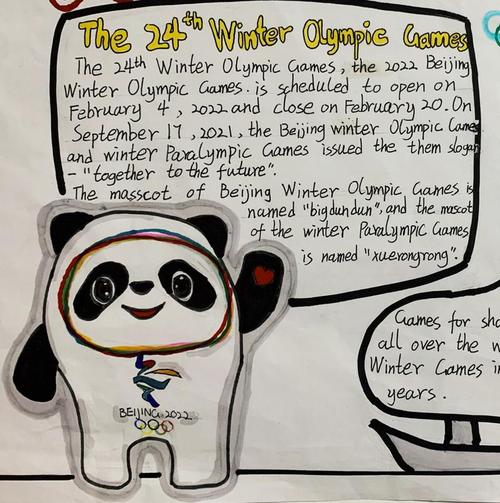 The 24th Winter Olympic Games
The 24th Winter Olympic Games, the 2022 Beijing
Winter Olympic Games. is scheduled to open on
February 4, 2022 and close on February 20. On
September 17, 2021, the Beijing winter Olympic Games
and winter Paralympic Games issued the them slogan
- "together to the future".
The masscot of Beijing Winter Olympic Games is
named "bigdundun", and the mascot
of the winter Paralympic Games
is named "xuerongrong".
BEIJING 2022
Games for
all over the
Winter Games
years.